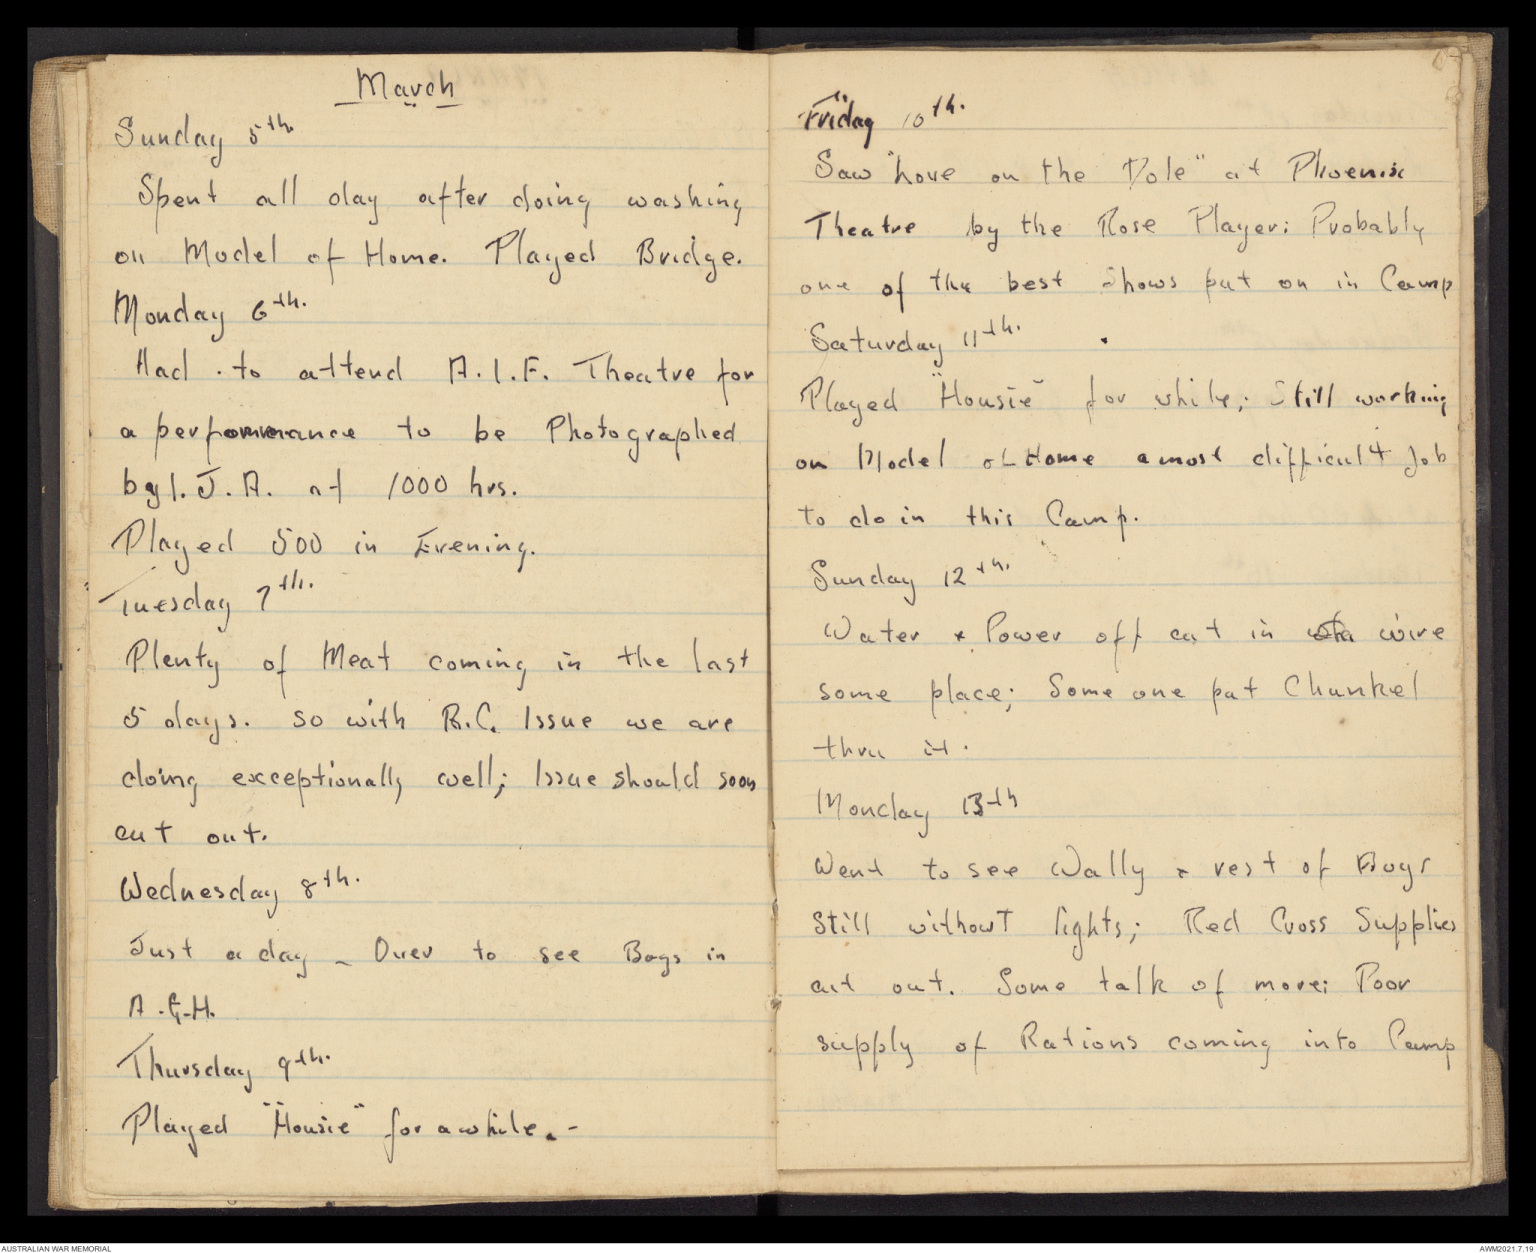 March
Sunday 5th.
Spent all day after doing washing
on Model of Home. Played Bridge.
Monday 6th.
Had to attend A.I.F. Theatre for
a performance to be Photographed
by I.J.A. at 1000 hrs.
Played 500 in Evening.
Tuesday 7th.
Plenty of Meat coming in the last
5 days. so with R.C. Issue we are
doing exceptionally well; Issue should soon
cut out.
Wednesday 8th.
Just a day - Over to see Boys in
A.G.H.
Thursday 9th.
Played "Housie" for a while. -
Friday 10th.
Saw "Love on the Dole" at Phoenix
Theatre by the Rose Player: Probably
one of the best shows put on in Camp
Saturday 11th.
Played "Housie" for while; Still working
on Model of Home a most difficult Job
to do in this Camp.
Sunday 12th.
Water & Power off cut in wire
some place; Some one put Chunkel
thru it.
Monday 13th
Went to see Wally & rest of Boys
Still without lights; Red Cross Supplies
cut out. Some talk of more; Poor
supply of Rations coming into Camp
AUSTRALIAN WAR MEMORIAL
AWM2021.7.19